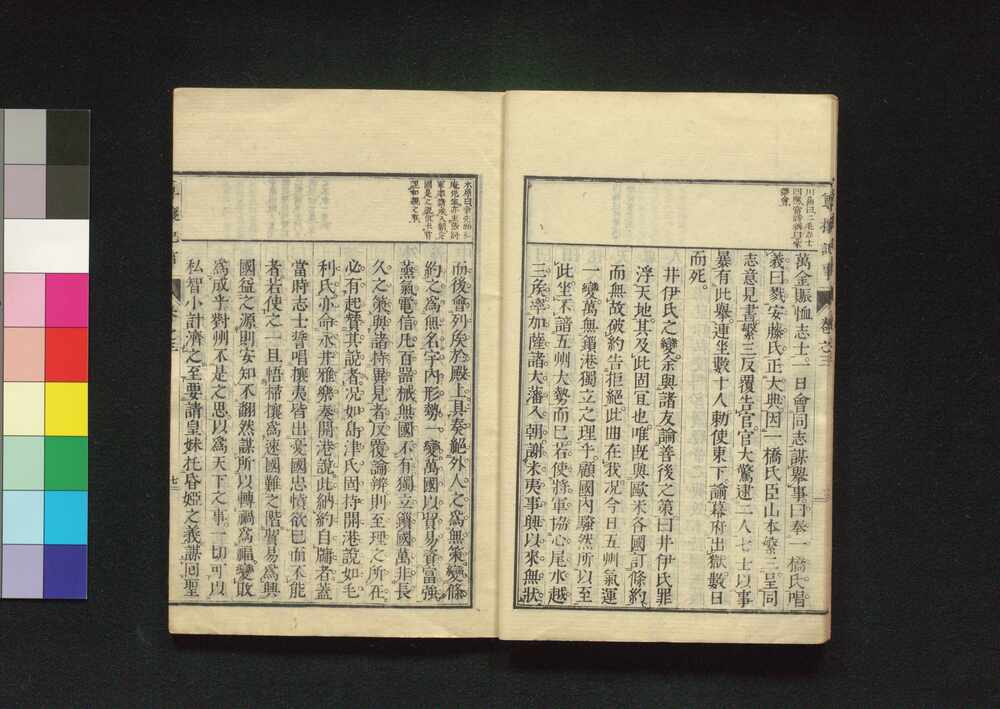 萬金賑恤志士。一日會同志謀舉事。曰奉一橋氏唱
義。曰戮安藤氏正大典。因一橋氏臣山本繁三呈同
志意見書。繁三反覆告官。官大驚逮二人。七士以事
暴有此舉。連坐數十人。勅使東下。諭幕府出獄。數日
而死。
井伊氏之變。余與諸友論善後之策曰。井伊氏罪
浮天地。其及此固宜也。唯既與歐米各國訂條約。
而無故破約告拒絕。此曲在我。况今日五州氣運
一變。萬無鎖港獨立之理乎。顧國内騷然。所以至
此。坐不諳五州大勢而已。若使將軍協心尾水越
三矦。率加薩諸大藩入朝。謝米夷事興以來無狀。
而後會列矦於殿上。具奏絕外人之爲無策。變條
約之爲無名。宇内形勢一變。萬國以貿易資富強。
蒸氣電信凡百器械。無國不有。獨立鎖國。萬非長
久之策。與諸持異見者。反覆論辨。則至理之所在。
必有起贊其說者。况如島津氏固持開港說。如毛
利氏亦命永井雅樂奏開港說。此納約自牖者。蓋
當時志士嘗唱攘夷。皆出憂國忠憤欲已而不能
者。若使之一旦悟掃攘爲速國難之階。貿易爲興
國益之源。則安知不翻然謀所以轉禍爲福。變敗
爲成乎。對州不是之思。以爲天下之事。一切可以
私智小計濟之。至要請皇妹托昏婭之義。謀回聖